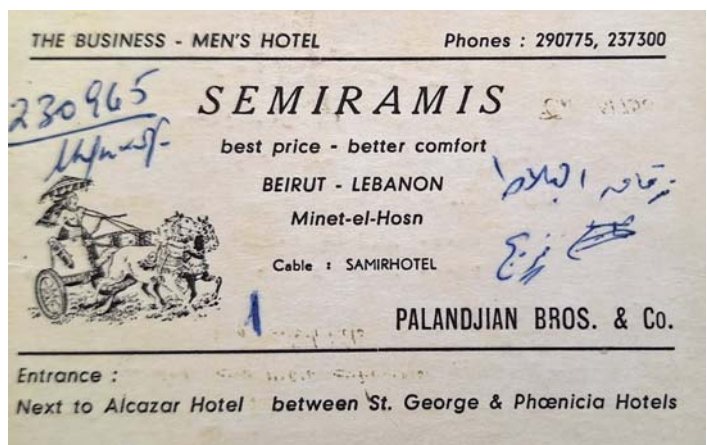 THE BUSINESS - MEN'S HOTEL Phones : 290775, 237300
230965
SEMIRAMIS
best price - better comfort
BEIRUT - LEBANON
Minet-el-Hosn
Cable : SAMIRHOTEL
1
PALANDJIAN BROS. & Co.
Entrance :
Next to Alcazar Hotel between St. George & Phœnicia Hotels